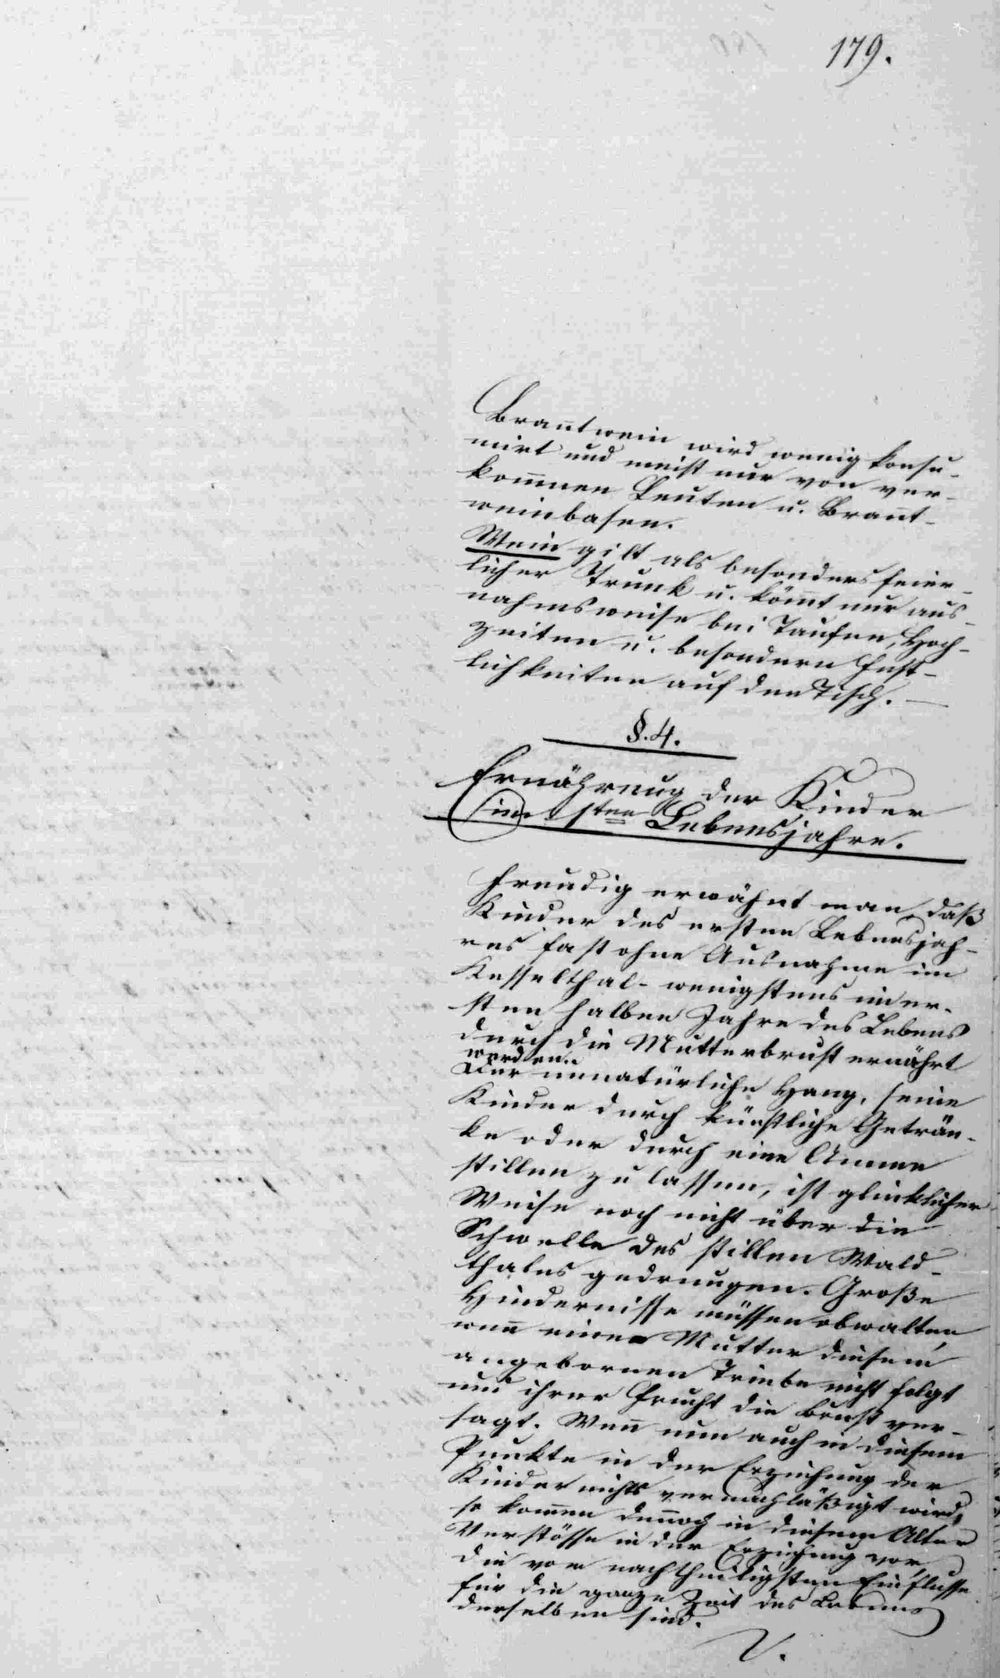 179.
Branntwein wird wenig konsu-
mirt und meist nur von ver-
kommen Leuten u. Brannt-
weinbasen.
Wein gilt als besonders feier-
licher Trunk u. kömmt nur aus-
nahmsweise bei Taufen, Hoch-
zeiten u. besondern Fest-
lichkeiten auf den Tisch. —
§. 4.
Ernährung der Kinder
im 1ten Lebensjahre.
Freudig erwähnt man, daß
Kinder des ersten Lebensjah-
res fast ohne Ausnahme im
Kesselthal - wenigstens im er-
sten halben Jahre des Lebens
durch die Mutterbrust ernährt
werden.
Der unnatürliche Hang, seine
Kinder durch künstliche Geträn-
ke oder durch eine Amme
stillen zu lassen, ist glücklicher
Weise noch nicht über die
Schwelle des stillen Wald-
thales gedrungen. Große
Hindernisse müssen obwalten,
wenn eine Mutter diesem
angebornen Triebe nicht folgt
und ihrer Frucht die Brust ver-
sagt. Wenn nun auch in diesem
Punkte in der Erziehung der
Kinder nichts vernachläßigt wird,
so kommen dennoch in diesem Alter
Verstösse in der Erziehung vor,
die vom nachtheiligsten Einflusse
für die ganze Zeit des Lebens
derselben sind.